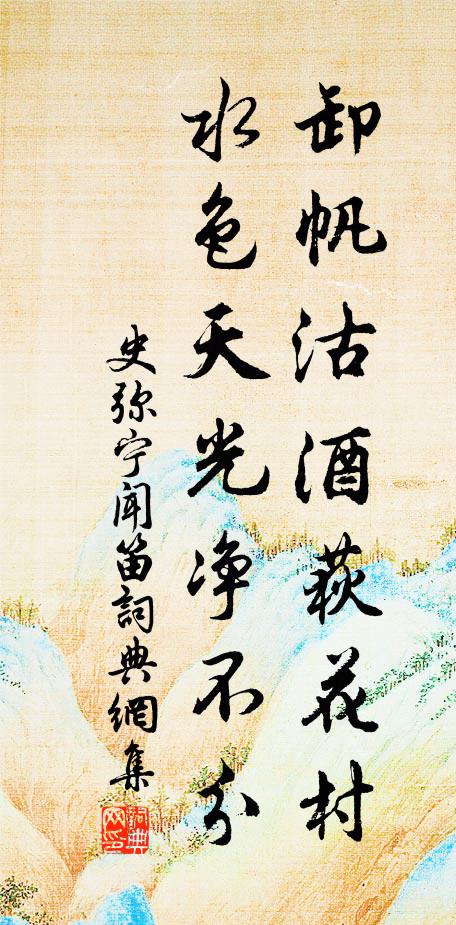 卸帆沽酒荻花村
水色天光净不分
史弥宁闻笛詞典網集
詞典